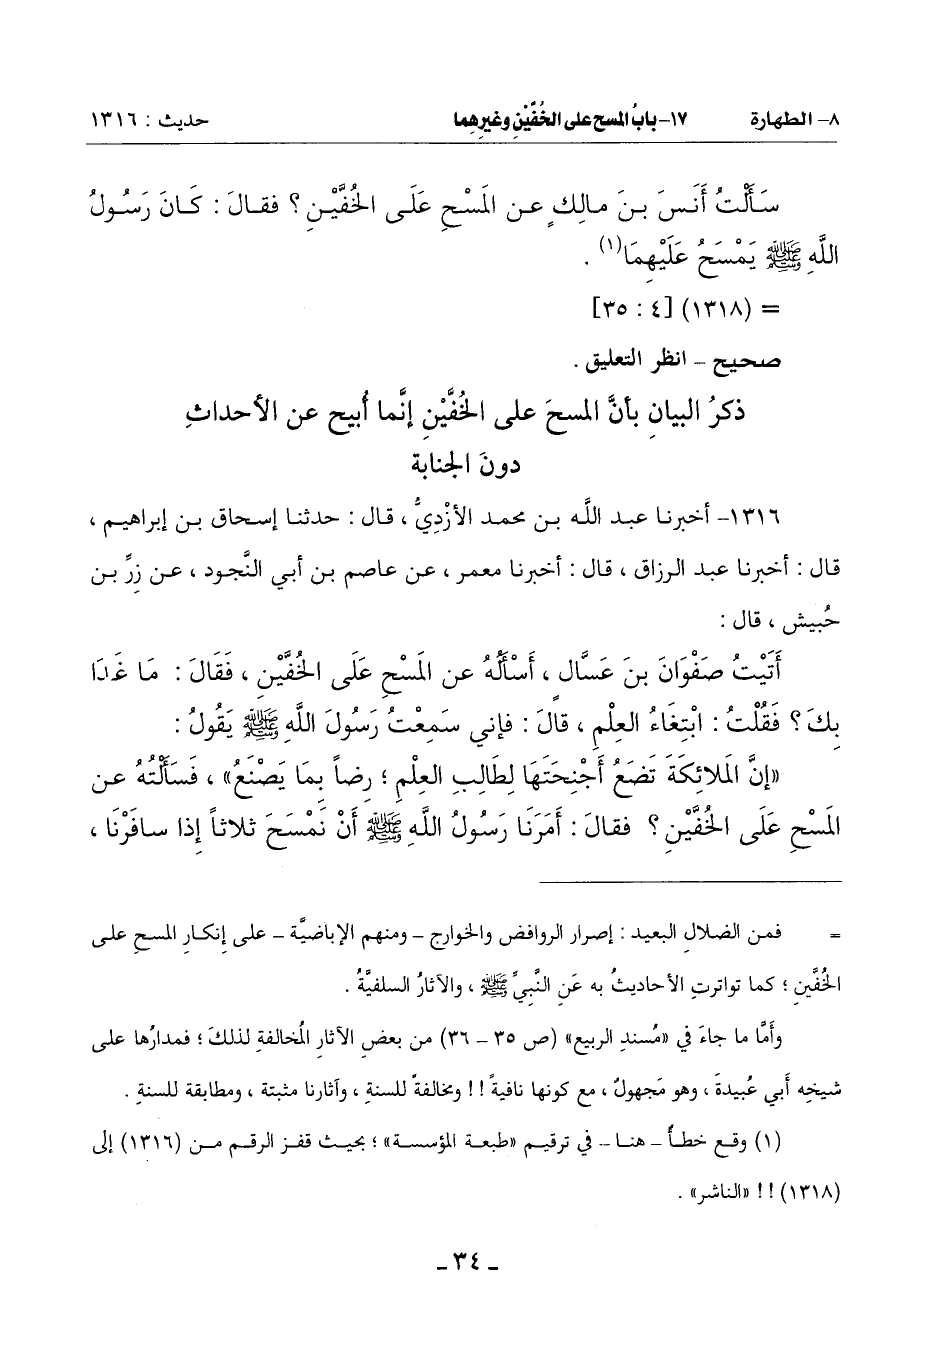 ٨- الطهارة ١٧- بابُ المسح على الخُفَّيْنِ وغيرِهِما حديث : ١٣١٦
سَأَلْتُ أَنَسَ بنَ مالِكٍ عن المَسْحِ عَلَى الخُفَّيْنِ ؟ فقالَ : كَانَ رَسُولُ
اللَّهِ ﷺ يَمْسَحُ عَلَيْهِمَا(١) .
= (١٣١٨) [٤ : ٣٥]
صحيح - انظر التعليق .
ذكرُ البيانِ بأنَّ المسحَ على الخُفَّيْنِ إنَّما أُبيح عن الأحداثِ
دونَ الجنابة
١٣١٦- أخبرنا عبد اللَّه بن محمد الأزْديُّ ، قال : حدثنا إسحاق بن إبراهيم ،
قال : أخبرنا عبد الرزاق ، قال : أخبرنا معمر ، عن عاصم بن أبي النَّجود ، عن زِرِّ بن
حُبيش ، قال :
أَتَيْتُ صَفْوَانَ بنَ عَسَّالٍ ، أَسْأَلُهُ عن المَسْحِ عَلَى الخُفَّيْنِ ، فَقَالَ : مَا غَدَا
بِكَ ؟ فَقُلْتُ : ابْتِغَاءُ العِلْمِ ، قالَ : فإني سَمِعْتُ رَسُولَ اللَّهِ ﷺ يَقُولُ :
«إنَّ المَلائِكَةَ تَضَعُ أَجْنِحَتَهَا لِطَالِبِ العِلْمِ ؛ رِضاً بِمَا يَصْنَعُ» ، فَسَأَلْتُهُ عن
المَسْحِ عَلَى الخُفَّيْنِ ؟ فقالَ : أَمَرَنَا رَسُولُ اللَّهِ ﷺ أَنْ نَمْسَحَ ثلاثاً إذا سافَرْنَا ،
= فمن الضلالِ البعيد : إصرار الروافض والخوارج - ومنهم الإباضيَّة - على إنكارِ المسح على
الخُفَّينِ ؛ كما تواترتِ الأحاديثُ به عَنِ النَّبيِّ ﷺ ، والآثارُ السلفيَّةُ .
وأمَّا ما جاءَ في «مُسندِ الربيع» (ص ٣٥ - ٣٦) من بعضِ الآثارِ المُخالفةِ لذلكَ ؛ فمدارُها على
شيخِه أبي عُبيدةَ ، وهو مَجهولٌ ، مع كونها نافيةً !! ومخالفةً للسنةِ ، وآثارنا مثبتة ، ومطابقة للسنةِ .
(١) وقع خطأٌ - هنا - في ترقيم «طبعة المؤسسة» ؛ بحيث قفز الرقم من (١٣١٦) إلى
(١٣١٨) !! «الناشر» .
- ٣٤ -